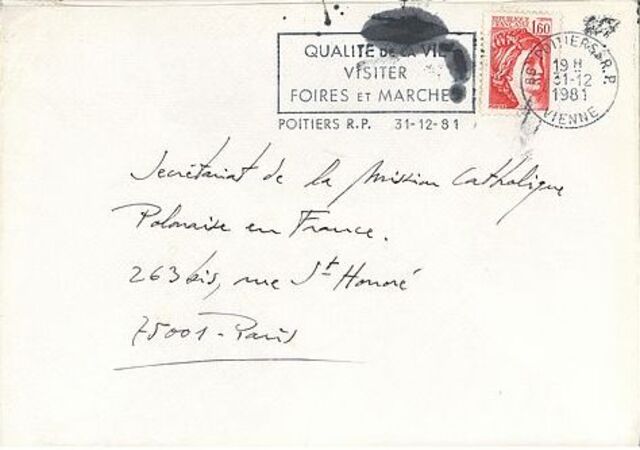 QUALITÉ DE LA VIE
VISITER
FOIRES ET MARCHES
POITIERS R.P. 31-12-81
REPUBLIQUE FRANÇAISE
1,60
POITIERS R.P.
19 H
31-12
1981
VIENNE
Secrétariat de la Mission Catholique
Polonaise en France.
263 bis, rue St Honoré
75001 - Paris